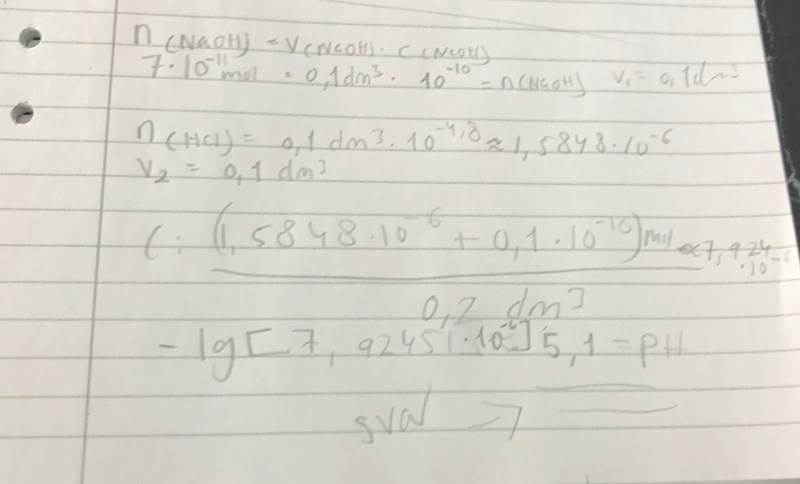 n(NaOH) = V(NaOH) · C(NaOH)
7·10⁻¹¹ mol = 0,1dm³ · 10⁻¹⁰ = n(NaOH) V₁ = 0,1dm³
n(HCl) = 0,1 dm³ · 10⁻⁴,⁸ ≈ 1,5848·10⁻⁶
V₂ = 0,1 dm³
C: (1,5848·10⁻⁶ + 0,1·10⁻¹⁰) mol ≈ 7,924·10⁻⁶
0,2 dm³
-lg[7,92451·10⁻⁶] 5,1 = pH
sva